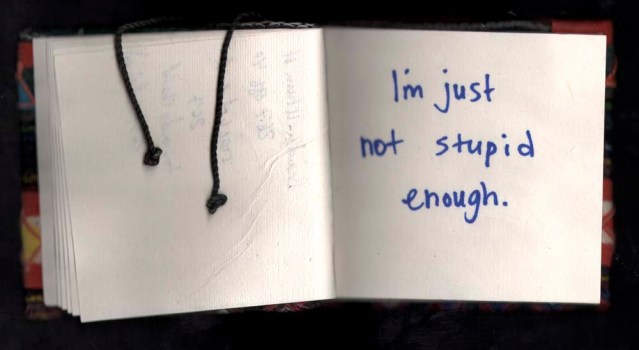 I'm just
not stupid
enough.